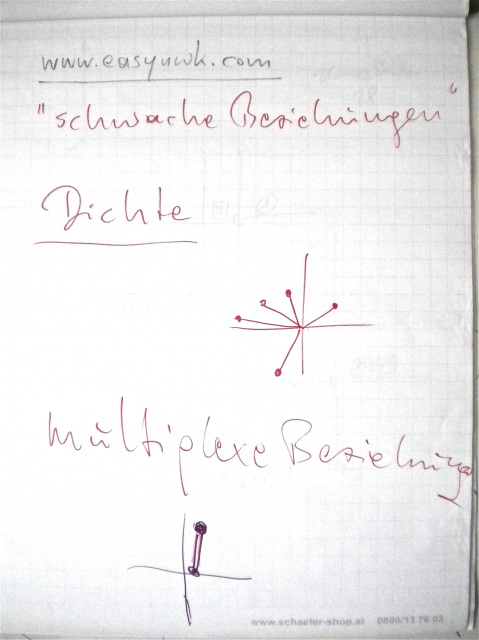 www.easynwk.com
"schwache Beziehungen"
Dichte
multiplexe Beziehung
www.schaefer-shop.at 0800/13 76 03